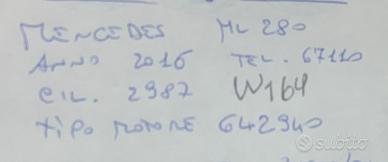 MERCEDES ML 280
ANNO 2016 TEL. 67110
CIL. 2987 W164
TIPO MOTORE 642940
subito